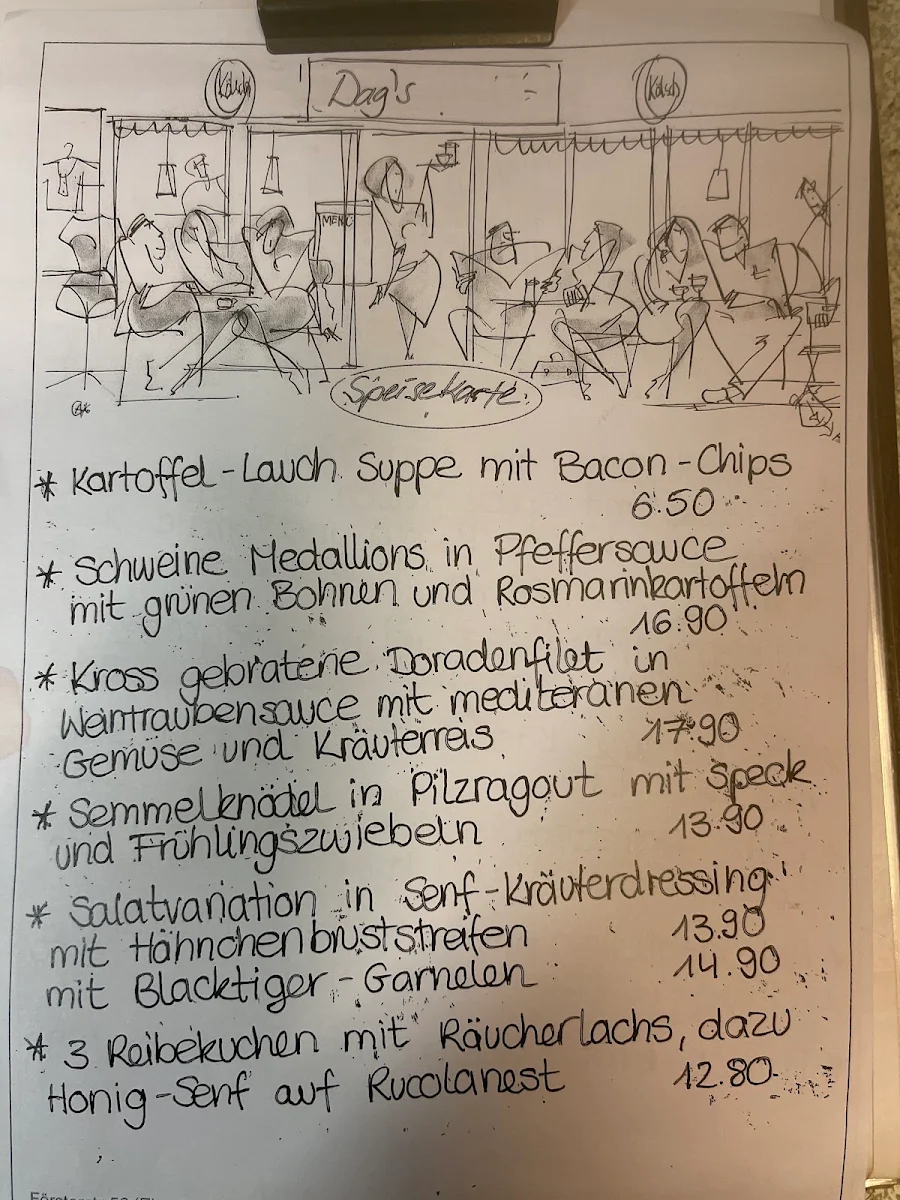 Kölsch
Dag's
Kölsch
MENÜ
Speisekarte
* Kartoffel-Lauch Suppe mit Bacon-Chips
6.50
* Schweine Medallions in Pfeffersauce
mit grünen Bohnen und Rosmarinkartoffeln
16.90
* Kross gebratene Doradenfilet in
Weintraubensauce mit mediteranen
Gemüse und Kräuterreis 17.90
* Semmelknödel in Pilzragout mit Speck
und Frühlingszwiebeln 13.90
* Salatvariation in Senf-Kräuterdressing
mit Hähnchenbruststreifen 13.90
mit Blacktiger-Garnelen 14.90
* 3 Reibekuchen mit Räucherlachs, dazu
Honig-Senf auf Rucolanest 12.80